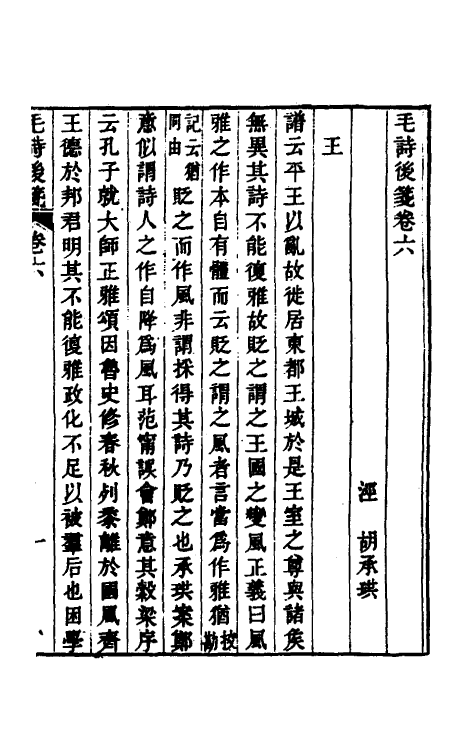 毛詩後箋卷六
涇　胡承珙
王
譜云平王以亂故徙居東都王城於是王室之尊與諸矦
無異其詩不能復雅故貶之謂之王國之變風正義曰風
雅之作本自有體而云貶之謂之風者言當爲作雅猶按勘
記云猶同由貶之而作風非謂採得其詩乃貶之也承珙案鄭
意似謂詩人之作自降爲風耳范甯誤會鄭意其穀梁序
云孔子就大師正雅頌因魯史修春秋列黍離於國風齊
王德於邦君明其不能復雅政化不足以被羣后也困學
毛詩後箋　卷六　一